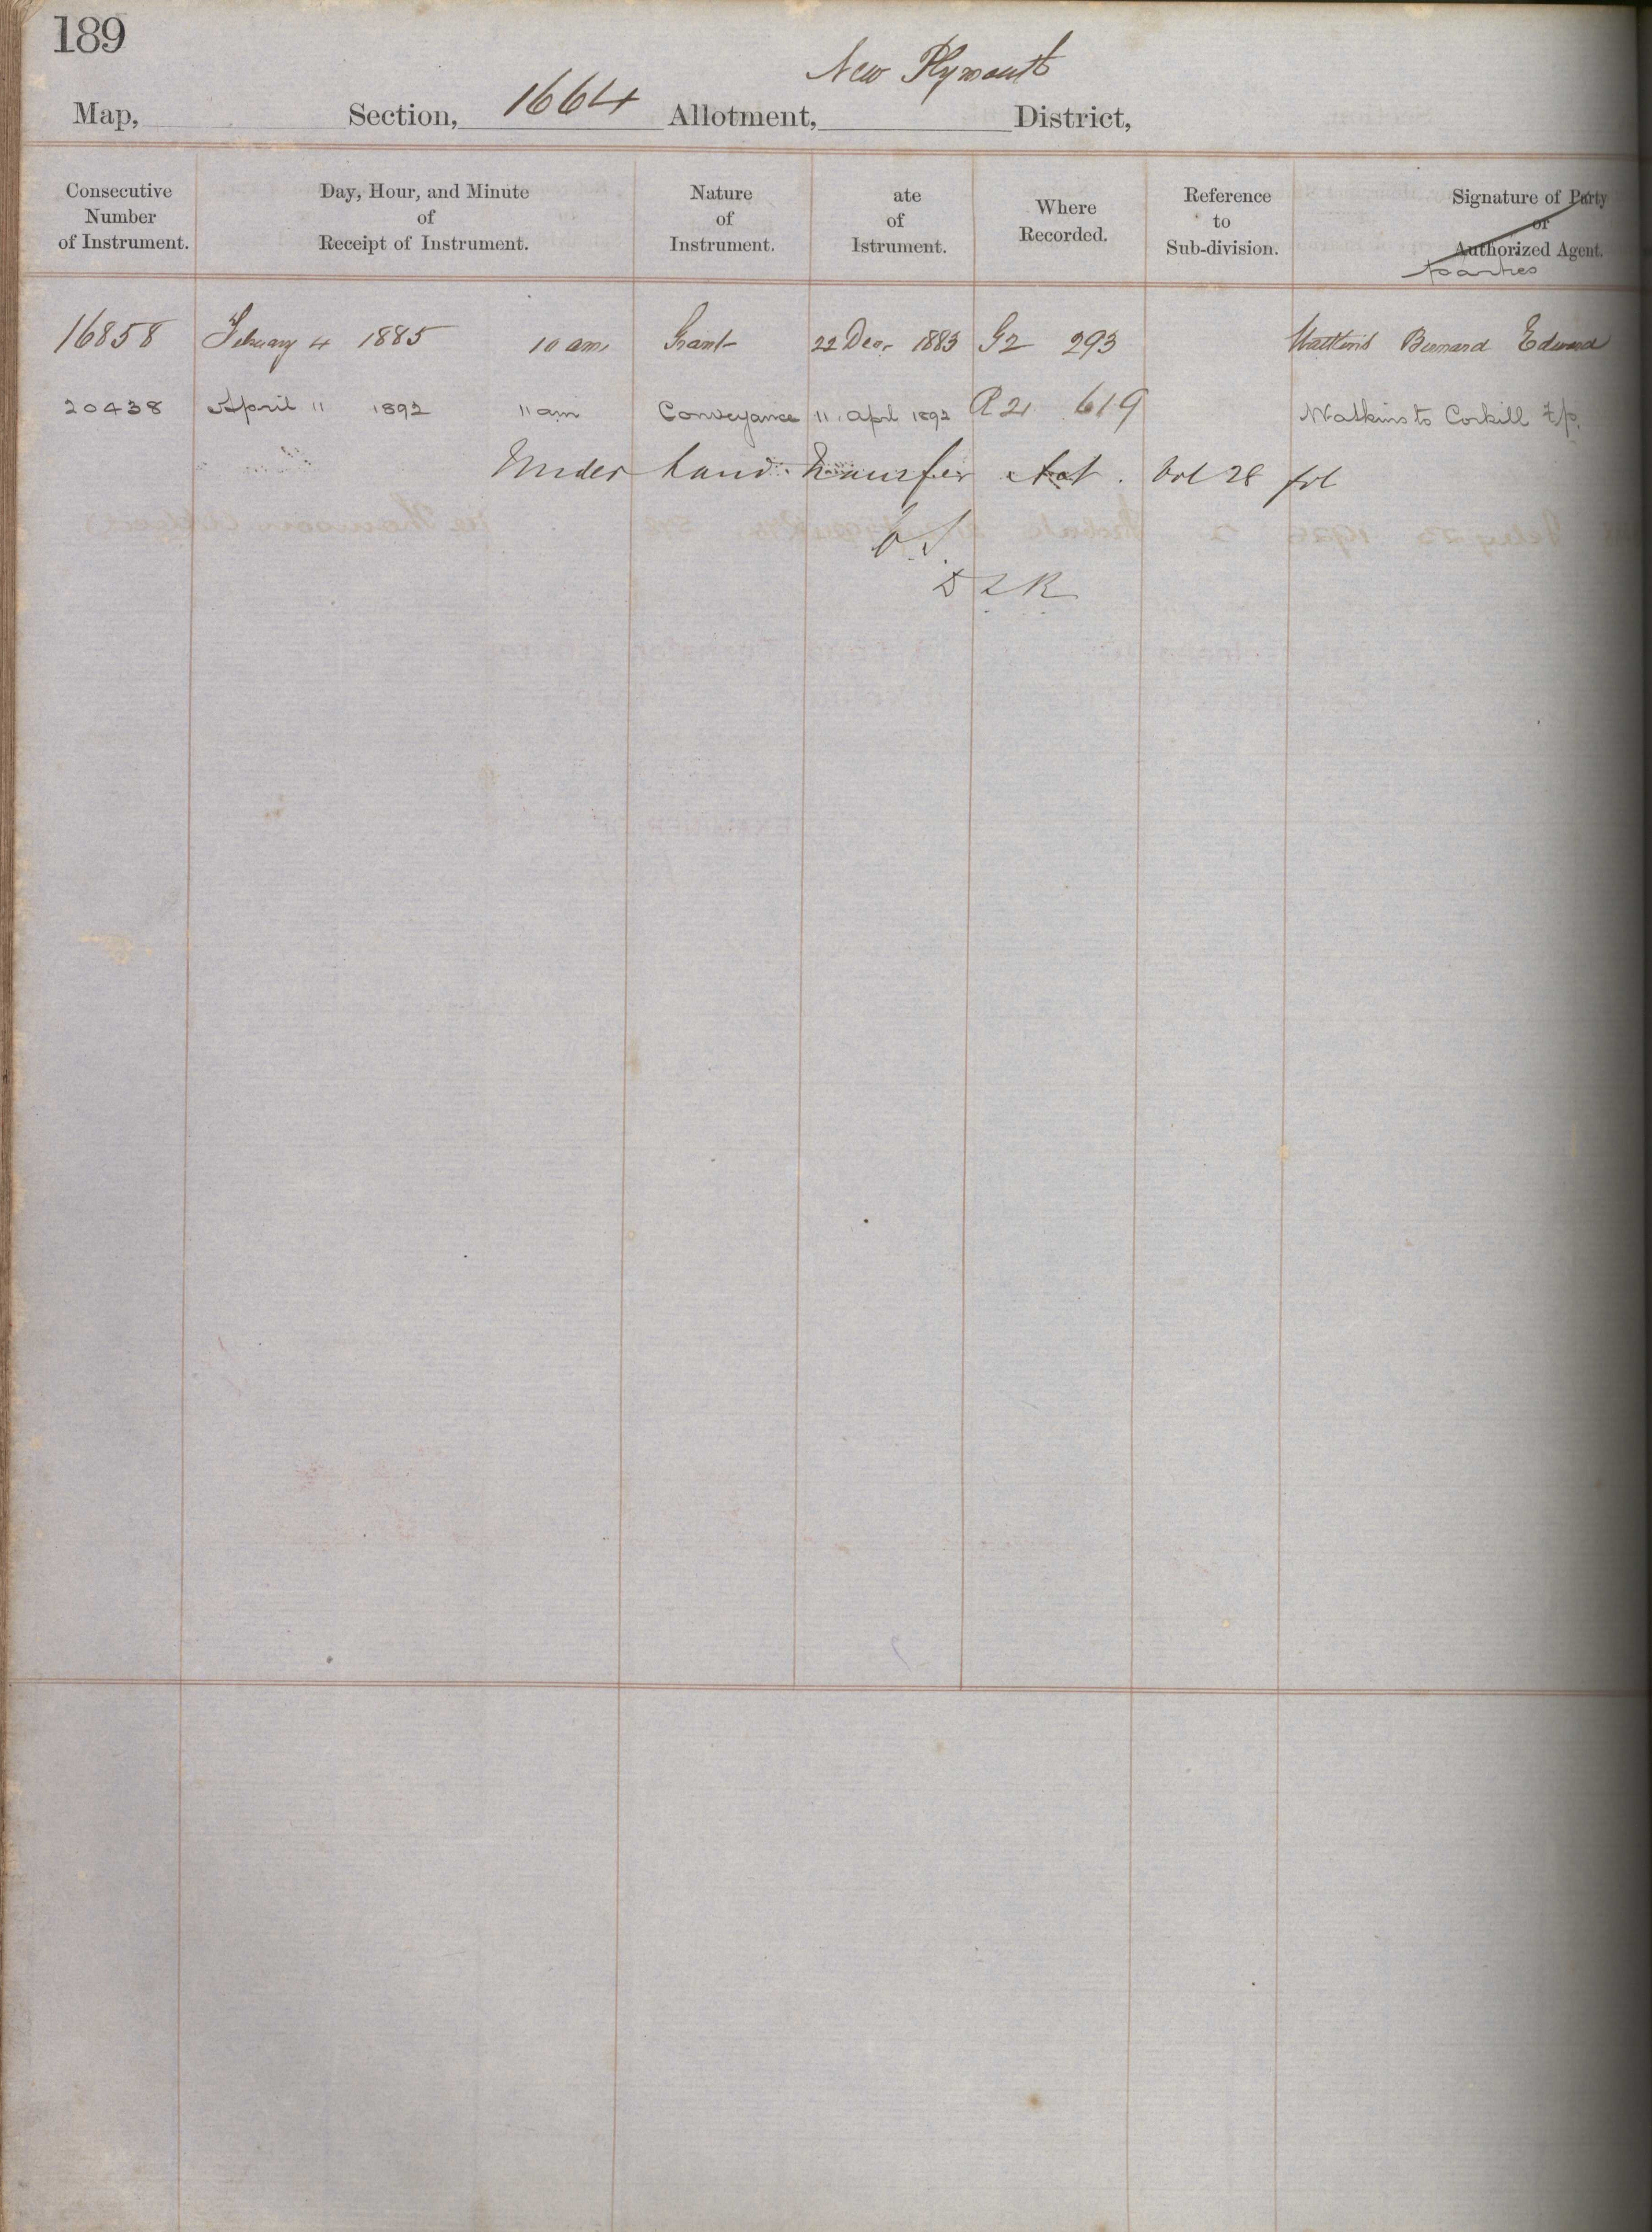 189
New Plymouth
Map, Section, 1664 Allotment, District,
Consecutive Number of Instrument. Day, Hour, and Minute of Receipt of Instrument. Nature of Instrument. ate of Istrument. Where Recorded. Reference to Sub-division. Signature of Party or Authorized Agent.
parties
16858 February 4 1885 10 am Grant 22 Decr 1883 G2 293 Watkins Bernard Edward
20438 April 11 1892 11 am Conveyance 11 April 1892 R 21 619 Watkins to Corkill F/p.
Under Land Transfer Act. Vol 28 fol
DLR